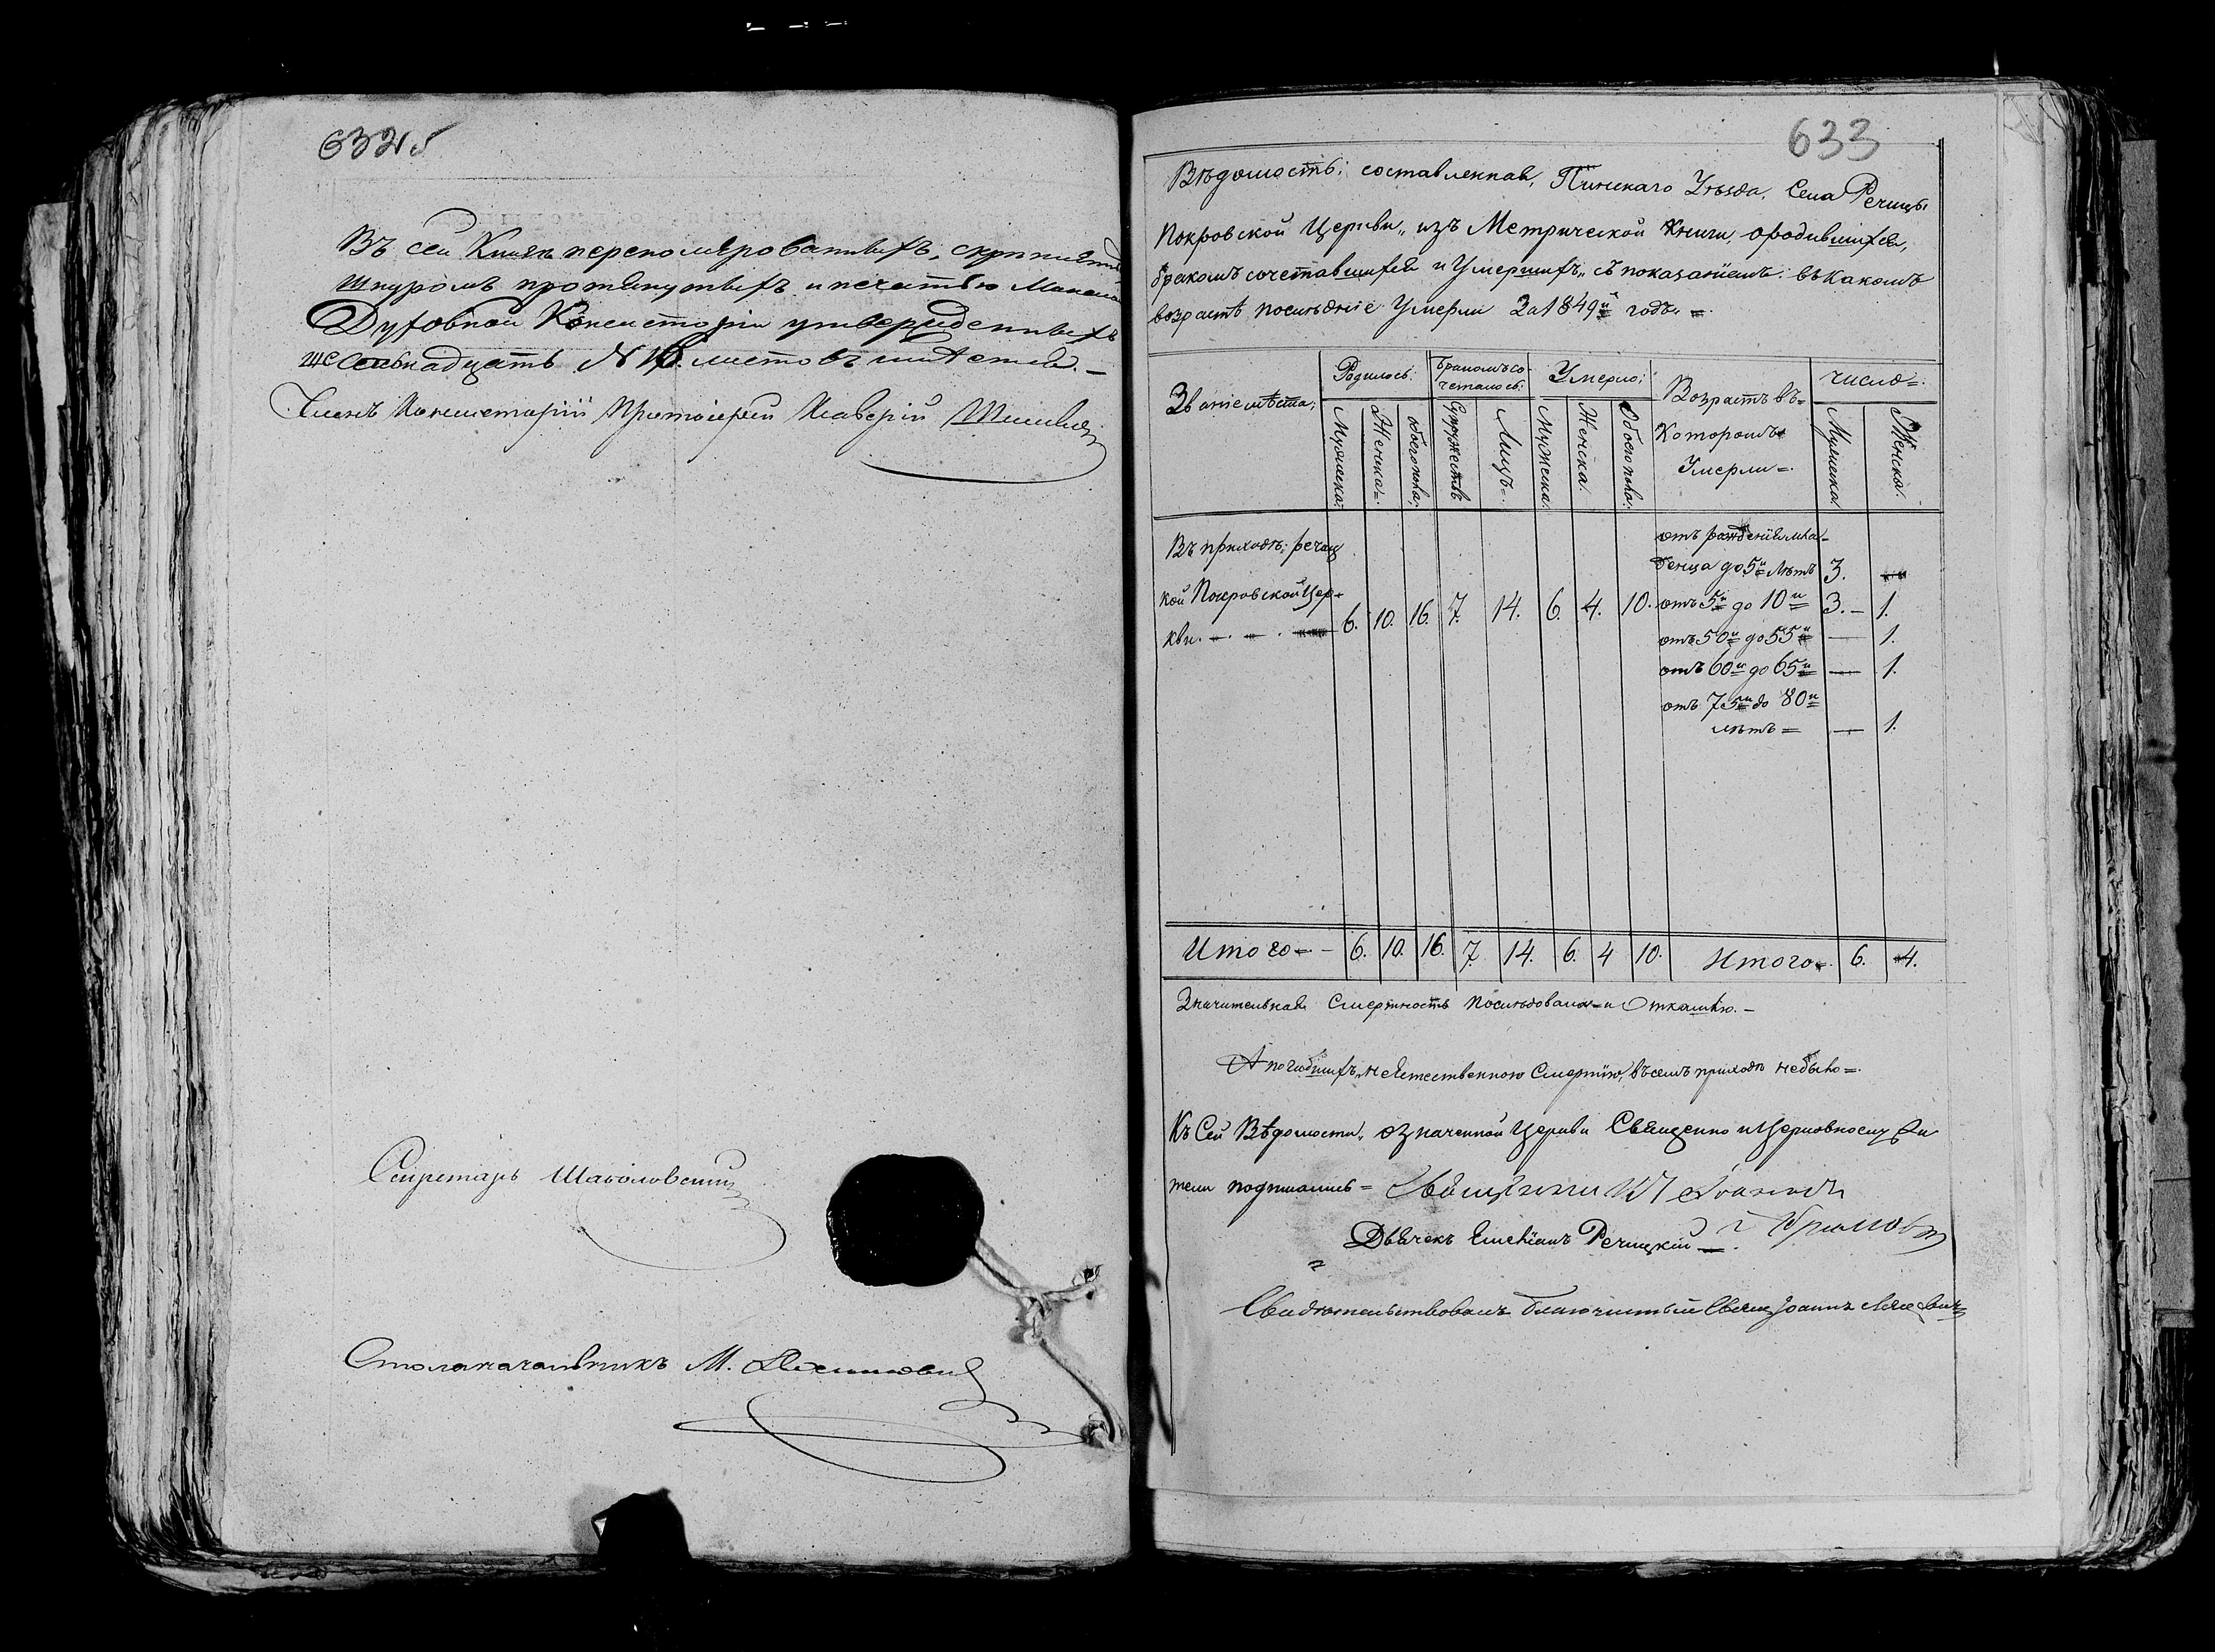 632 об
Въ сей Книгѣ перенумерованныхъ, скрѣпленныхъ
шнуромъ протянутыхъ и печатью Минской
Духовной Консисторіи утвержденныхъ
шестнадцать № 16. листовъ имѣется. –
Членъ Консисторіи Протоіерей Ксаверій
Секретарь
Столоначальникъ М.
633
Вѣдомость; составленная, Пинскаго Уѣзда, Села Речицы
Покровской Церкви, изъ Метрической Книги, ородившихся,
бракомъ сочетавшихся и Умершихъ, съ показаніемъ: въ какомъ
возрастѣ послѣдніе Умерли За 1849й годъ. =
Званіе мѣста; Родилось: Бракомъ со- Умерло: Возрастъ въ= число=.
четалось:
Мужеска: Женска=. обоего пола; Супружествъ Лицъ=. Мужеска. Женска. Обоего пола. Которомъ Мужеска. Женска.
Умерли=.
Въ приходѣ; речиц
кой Покровской Цер=
кви. 6. 10. 16. 7. 14. 6. 4. 10.
отъ рожденія мла-
денца до 5и лѣтъ 3. –
отъ 5и до 10и 3. – 1.
отъ 50и до 55и — 1.
отъ 60и до 65и — 1.
отъ 75и до 80и
лѣтъ = — 1.
Итого = – 6. 10. 16. 7. 14. 6. 4 10. Итого =. 6. 4.
Значительная Смертность послѣдовала = и Откашлю. –
А погибшихъ, неестественною Смертію, въ семъ приходѣ небыло =.
Къ Сей Вѣдомости, означенной Церкви Священно и Церковнослужи
тели подписались = Священникъ
Дьячекъ Емеліанъ Речицкій =.
Свидѣтельствовалъ благочинный Свящ Іоаннъ